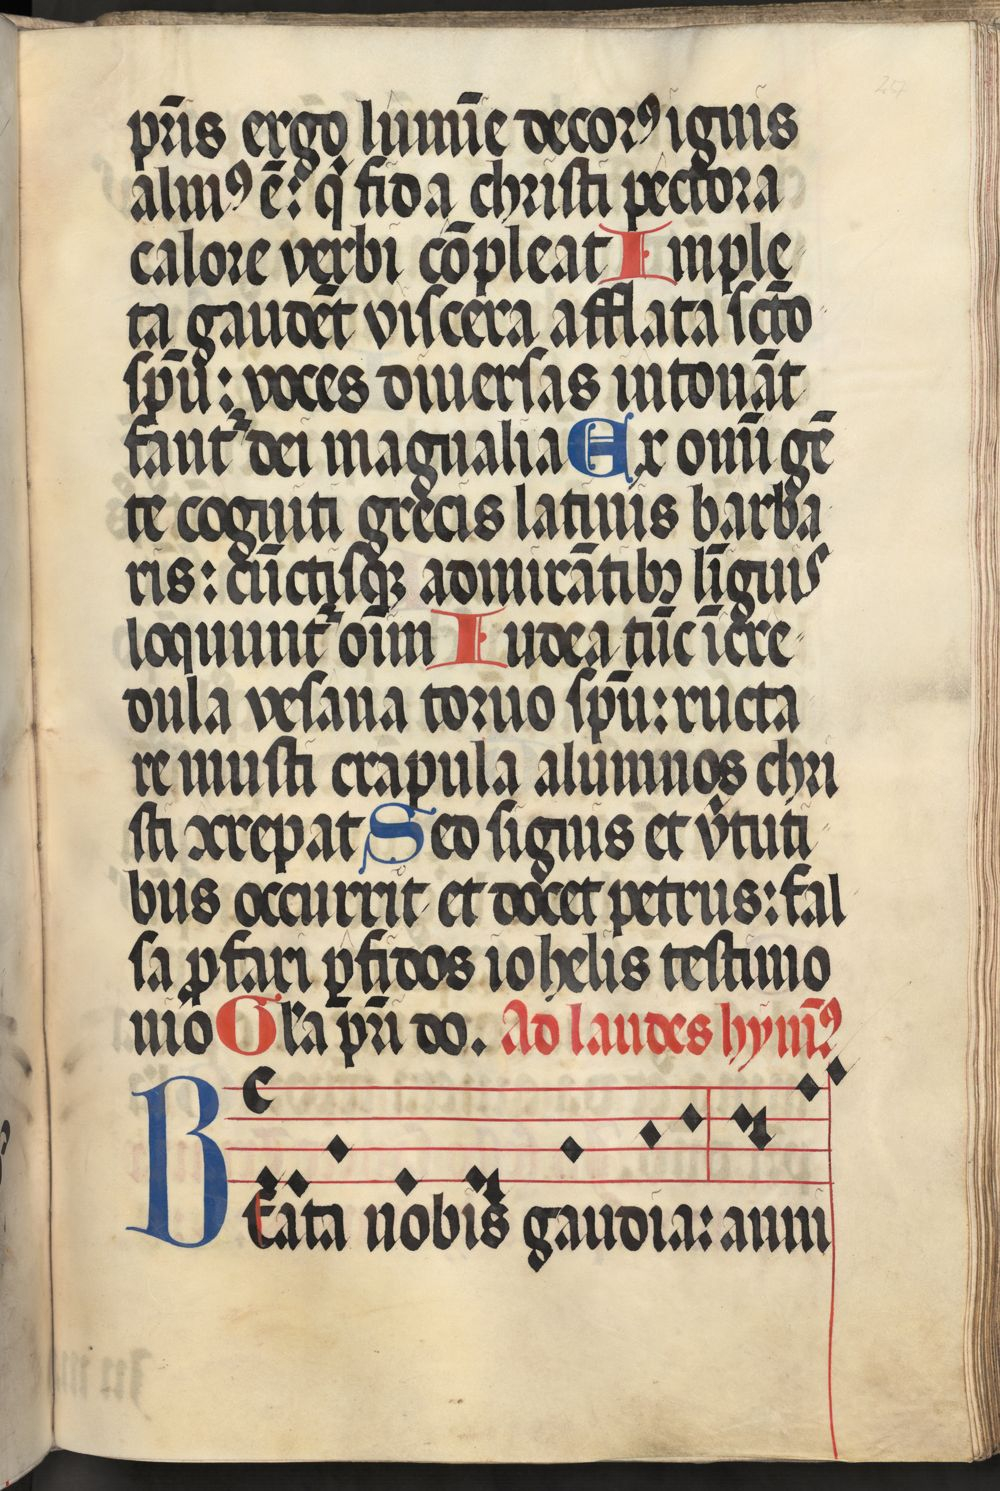 pr̄is ergo lumīe decorꝰ ignis
almꝰ ē: q̇ fida christi pectora
calore verbi cōpleat Imple
ta gaudēt viscera afflata sctō
spū: voces diuersas intonāt
fant᷑ dei magnalia Ex om̄i gē
te cogniti grecis latinis barba
ris: cūctisqꝫ admirātibꝫ līguis
loquunt᷑ oīm Iudea tūc īcre
dula vesana toruo spū: ructa
re musti crapula alumnos chri
sti xrepat Sed signis et v̓tuti
bus occurrit et docet petrus: fal
sa ꝓfari ꝑfidos iohelis testimo
nio Gl̄a pr̄i do. Ad laudes hym̄ꝰ
Beata nobis gaudia: anni
27